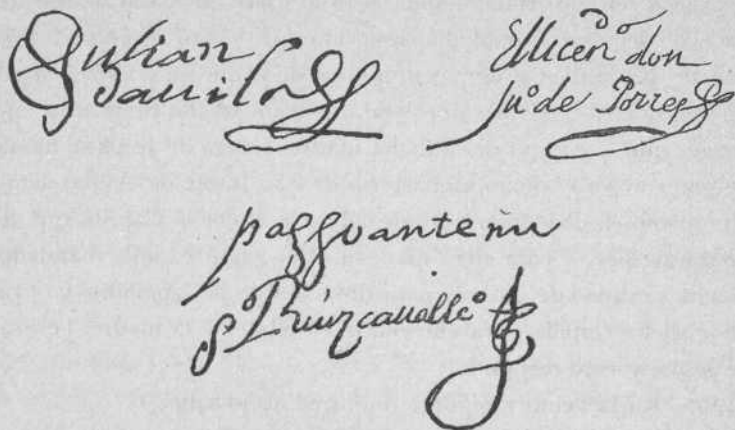 Julian
davila
Ellicen.do don
Ju.o de Torres
passo ante mi
P.o Ruiz cavalle.o